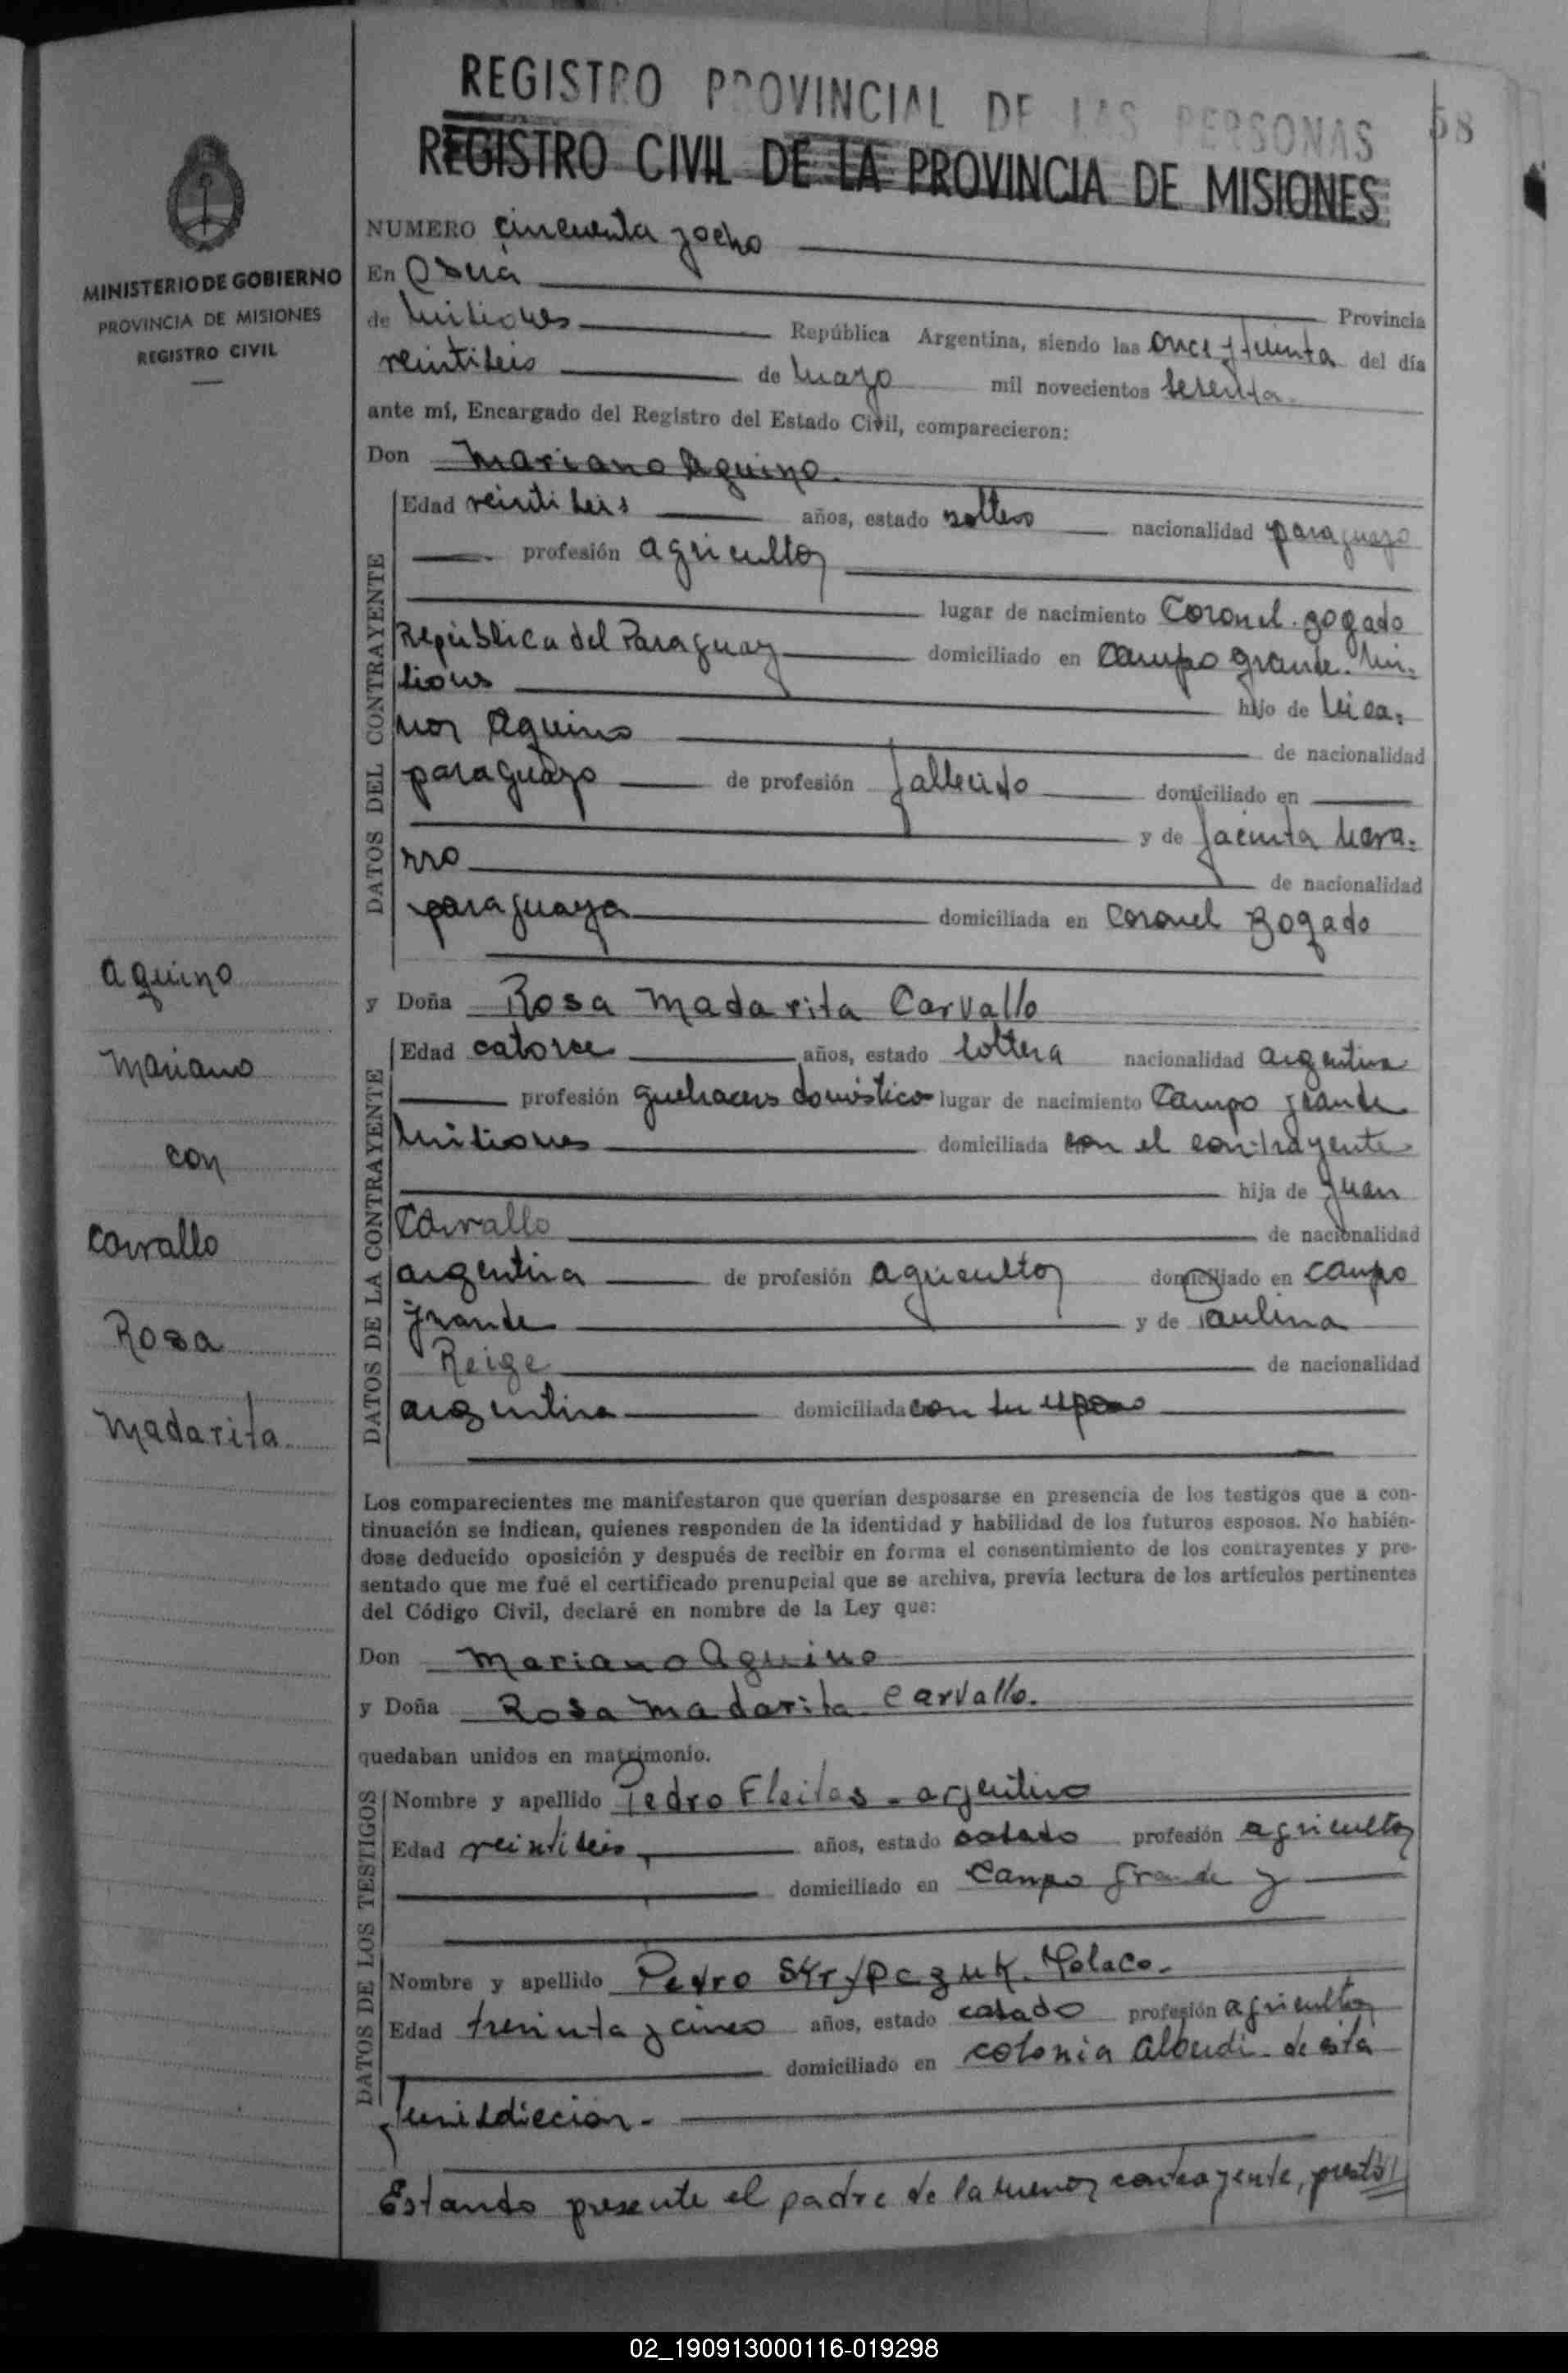 REGISTRO PROVINCIAL DE LAS PERSONAS
58
REGISTRO CIVIL DE LA PROVINCIA DE MISIONES
MINISTERIO DE GOBIERNO
PROVINCIA DE MISIONES
REGISTRO CIVIL
Aquino
Mariano
con
Carvallo
Rosa
Madarita
NUMERO cincuenta y ocho
En Oberá
Provincia
de Misiones República Argentina, siendo las once y treinta del día
veintiseis de mayo mil novecientos sesenta.
ante mí, Encargado del Registro del Estado Civil, comparecieron:
Don Mariano Aquino.
DATOS DEL CONTRAYENTE
Edad veintiseis años, estado soltero nacionalidad paraguayo
profesión agricultor
lugar de nacimiento Coronel Bogado
República del Paraguay domiciliado en Campo grande. Mi-
siones
hijo de Nica-
nor Aquino
de nacionalidad
paraguayo de profesión fallecido domiciliado en
y de Jacinta
de nacionalidad
paraguaya domiciliada en Coronel Bogado
y Doña Rosa Madarita Carvallo
DATOS DE LA CONTRAYENTE
Edad catorce años, estado soltera nacionalidad argentina
profesión quehaceres doméstico lugar de nacimiento Campo grande
Misiones domiciliada con el contrayente
hija de Juan
Carvallo de nacionalidad
argentina de profesión agricultor domiciliado en Campo
grande y de Paulina
Reige de nacionalidad
argentina domiciliada con su esposo
Los comparecientes me manifestaron que querían desposarse en presencia de los testigos que a con-
tinuación se indican, quienes responden de la identidad y habilidad de los futuros esposos. No habién-
dose deducido oposición y después de recibir en forma el consentimiento de los contrayentes y pre-
sentado que me fué el certificado prenupcial que se archiva, previa lectura de los artículos pertinentes
del Código Civil, declaré en nombre de la Ley que:
Don Mariano Aquino
y Doña Rosa Madarita Carvallo.
quedaban unidos en matrimonio.
DATOS DE LOS TESTIGOS
Nombre y apellido Pedro Fleitas - argentino
Edad veintiseis años, estado casado profesión agricultor
domiciliado en Campo grande y
Nombre y apellido Pedro Skrypczuk. Polaco.
Edad treinta y cinco años, estado casado profesión agricultor
domiciliado en colonia Alberdi de esta
Jurisdiccion.
Estando presente el padre de la menor contrayente, prestó
02_190913000116-019298